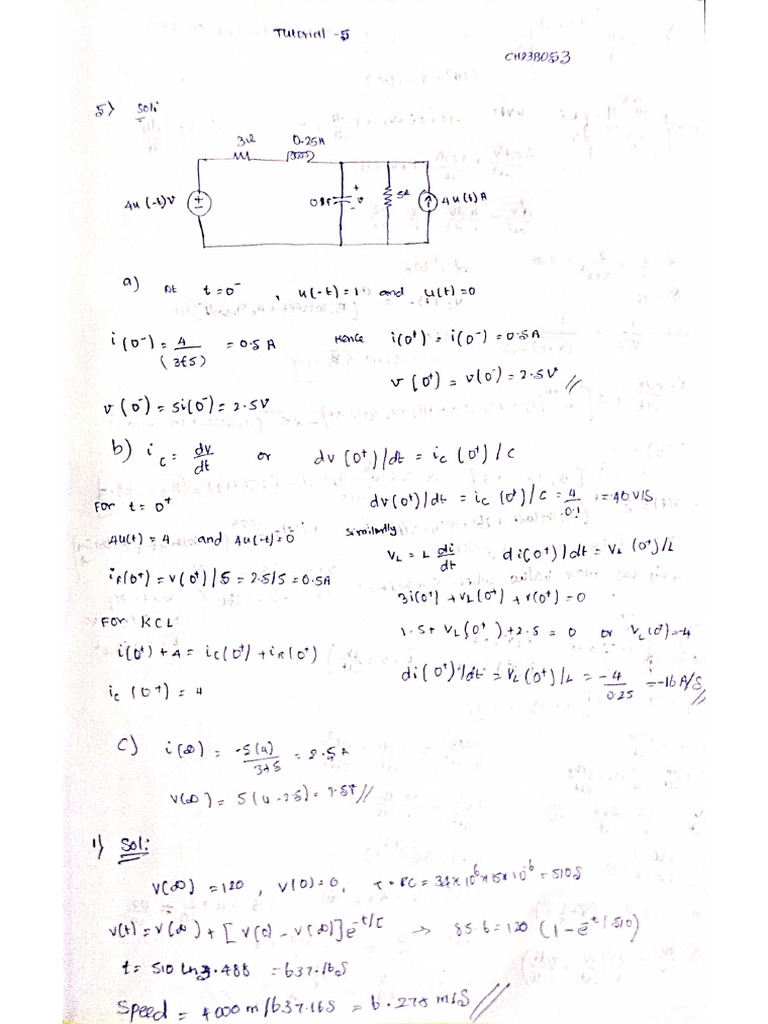 Tutorial -5
CH23B053
5) Sol:
3Ω 0.25H
4u(-t)V
+
-
v
5Ω
4u(t)A
a) At t=0⁻ , u(-t)=1 and u(t)=0
i(0⁻) = 4/(3+5) = 0.5 A Hence i(0⁺) = i(0⁻) = 0.5A
v(0⁺) = v(0⁻) = 2.5V //
v(0⁻) = 5i(0⁻) = 2.5V
b) i_C = dv/dt or dv(0⁺)/dt = i_C(0⁺)/C
For t=0⁺ dv(0⁺)/dt = i_C(0⁺)/C = 4/0.1 = 40V/S
4u(t)=4 and 4u(-t)=0 Similarly
V_L = L di/dt di(0⁺)/dt = V_L(0⁺)/L
i_R(0⁺) = v(0⁺)/5 = 2.5/5 = 0.5A
3i(0⁺) + V_L(0⁺) + v(0⁺) = 0
For KCL
1.5 + V_L(0⁺) + 2.5 = 0 or V_L(0⁺) = -4
i(0⁺) + 4 = i_C(0⁺) + i_R(0⁺)
di(0⁺)/dt = V_L(0⁺)/L = -4/0.25 = -16 A/S //
i_C(0⁺) = 4
C) i(∞) = -5(4)/3+5 = 2.5A
v(∞) = 5(4-2.5) = 7.5V //
1) Sol:
V(∞) = 120 , V(0)=0, τ = RC = 34×10⁶×15×10⁻⁶ = 510S
v(t) = v(∞) + [v(0) - v(∞)]e^-t/τ → 85.6 = 120 (1-e^-t/510)
t = 510 ln 3.488 = 637.16S
Speed = 4000m/637.16S = 6.278 m/S //